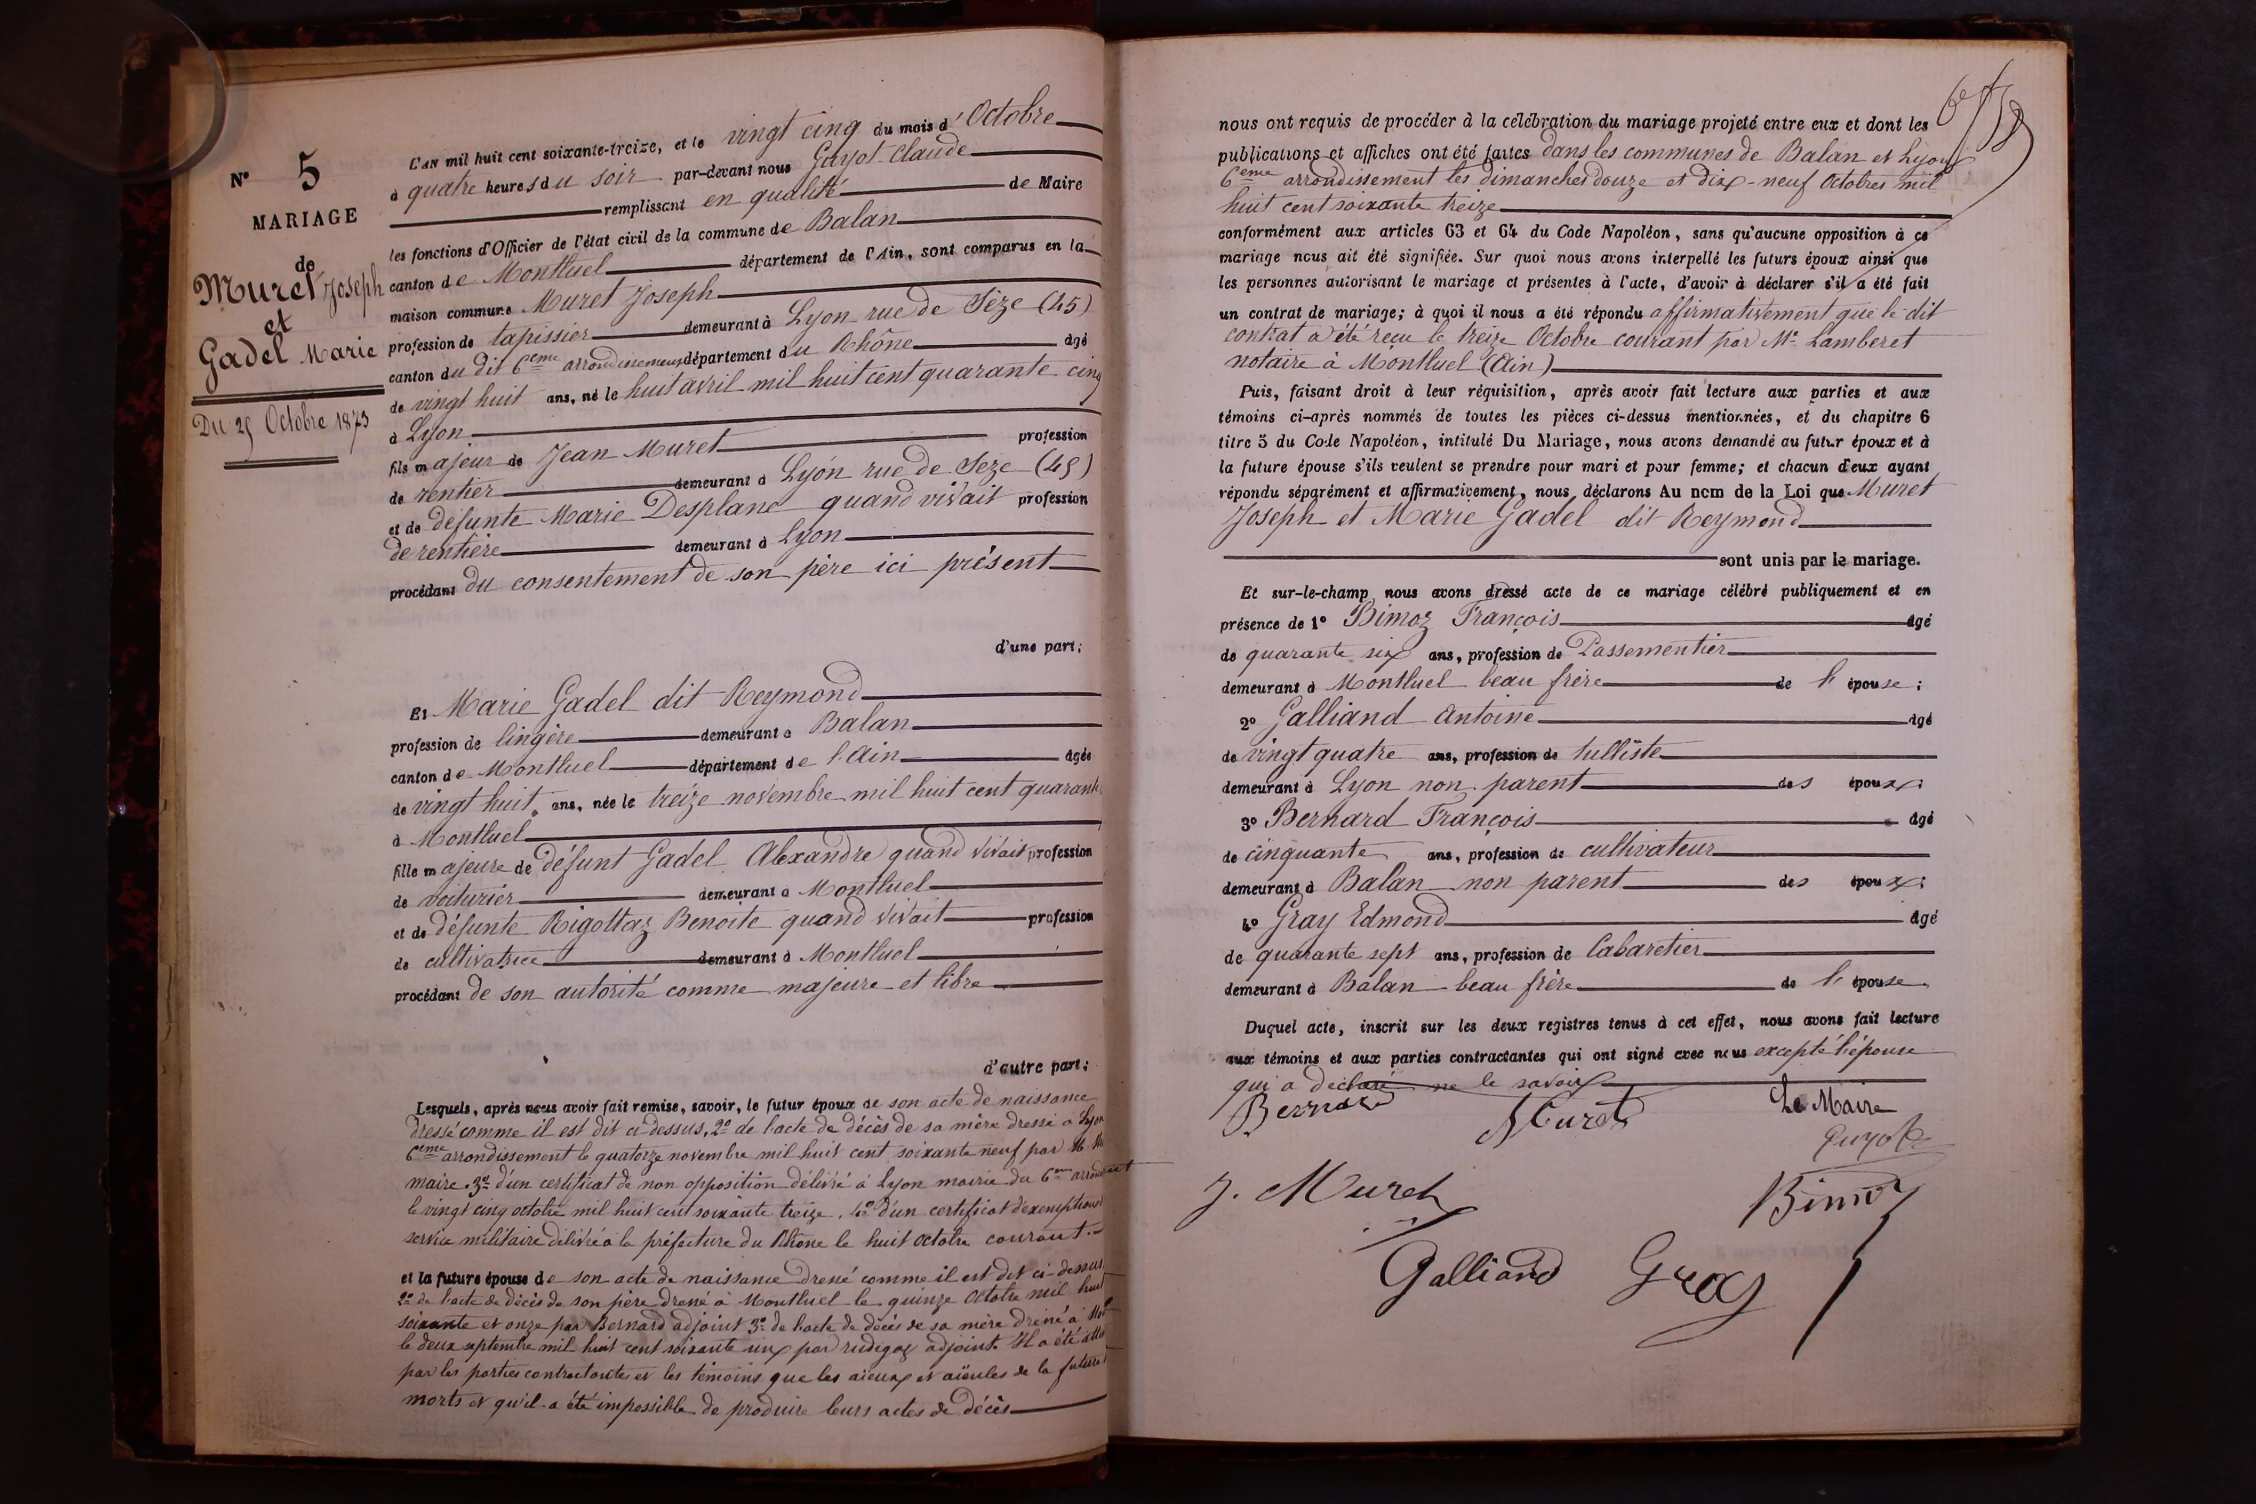 N° 5
MARIAGE
de
Muret Joseph
et
Gadel Marie
Du 25 Octobre 1873
L'AN mil huit cent soixante-treize, et le vingt cinq du mois d'Octobre
à quatre heures du soir par-devant nous Guyot Claude
remplissant en qualité de Maire
les fonctions d'Officier de l'état civil de la commune de Balan
canton de Montluel département de l'Ain, sont comparus en la
maison commune Muret Joseph
profession de tapissier demeurant à Lyon rue de Sèze (45)
canton du dit 6ème arrondissement département du Rhône âgé
de vingt huit ans, né le huit avril mil huit cent quarante cinq
à Lyon
fils majeur de Jean Muret profession
de rentier demeurant à Lyon rue de Seze (45)
et de défunte Marie Desplane quand vivait profession
de rentière demeurant à Lyon
procédant du consentement de son père ici présent
d'une part;
Et Marie Gadel dit Reymond
profession de lingère demeurant à Balan
canton de Montluel département de l'Ain âgée
de vingt huit ans, née le treize novembre mil huit cent quarante
à Montluel
fille majeure de défunt Gadel Alexandre quand vivait profession
de voiturier demeurant à Montluel
et de défunte Rigottaz Benoite quand vivait profession
de cultivatrice demeurant à Montluel
procédant de son autorité comme majeure et libre
d'autre part;
Lesquels, après nous avoir fait remise, savoir, le futur époux de son acte de naissance
dressé comme il est dit ci dessus, 2° de l'acte de décès de sa mère dressé à Lyon
6ème arrondissement le quatorze novembre mil huit cent soixante neuf par M.
maire. 3° d'un certificat de non opposition délivré à Lyon mairie du 6me arrondissent
le vingt cinq octobre mil huit cent soixante treize. 4° d'un certificat d'exemption
service militaire délivré à la préfecture du Rhône le huit octobre courant.
et la future épouse de son acte de naissance dressé comme il est dit ci-dessus
2° de l'acte de décès de son père dressé à Montluel le quinze octobre mil huit
soixante et onze par Bernard adjoint 3° de l'acte de décès de sa mère dressé à
le deux septembre mil huit cent soixante un par rudigoz adjoint. Il a été
par les parties contractantes et les témoins que les aïeux et aïeules de la future
morts et qu'il a été impossible de produire leurs actes de décès
nous ont requis de procéder à la célébration du mariage projeté entre eux et dont les
publications et affiches ont été faites dans les communes de Balan et Lyon
6ème arrondissement les dimanches douze et dix-neuf Octobres mil
huit cent soixante treize
conformément aux articles 63 et 64 du Code Napoléon, sans qu'aucune opposition à ce
mariage nous ait été signifiée. Sur quoi nous avons interpellé les futurs époux ainsi que
les personnes autorisant le mariage et présentes à l'acte, d'avoir à déclarer s'il a été fait
un contrat de mariage; à quoi il nous a été répondu affirmativement que le dit
contrat a été reçu le treize Octobre courant par Me Lamberet
notaire à Montluel (Ain)
Puis, faisant droit à leur réquisition, après avoir fait lecture aux parties et aux
témoins ci-après nommés de toutes les pièces ci-dessus mentionnées, et du chapitre 6
titre 5 du Code Napoléon, intitulé Du Mariage, nous avons demandé au futur époux et à
la future épouse s'ils veulent se prendre pour mari et pour femme; et chacun d'eux ayant
répondu séparément et affirmativement, nous déclarons Au nom de la Loi que Muret
Joseph et Marie Gadel dit Reymond
sont unis par le mariage.
Et sur-le-champ nous avons dressé acte de ce mariage célébré publiquement et en
présence de 1° Bimoz François âgé
de quarante six ans, profession de Passementier
demeurant à Montluel beau frère de l'épouse;
2° Galliand Antoine âgé
de vingt quatre ans, profession de tulliste
demeurant à Lyon non parent des époux;
3° Bernard François âgé
de cinquante ans, profession de cultivateur
demeurant à Balan non parent des époux;
4° Gray Edmond âgé
de quarante sept ans, profession de Cabaretier
demeurant à Balan beau frère de l'épouse
Duquel acte, inscrit sur les deux registres tenus à cet effet, nous avons fait lecture
aux témoins et aux parties contractantes qui ont signé avec nous excepté l'épouse
qui a déclaré ne le savoir
Bernard Muret Le Maire
Guyot
J. Muret Bimoz
Galliand Gray